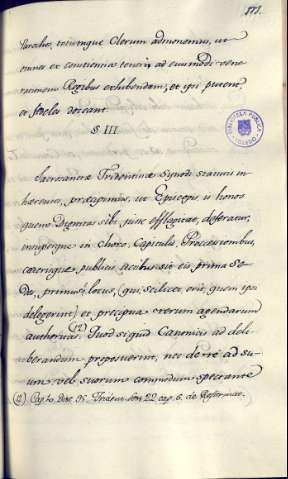 171.
Parochos, totumque Clerum admonemus, ut
omnes ex conscientia teneri ad eiusmodi vene-
rationem Regibus exhibendam, et ipsi putent,
et fideles doceant.
§ III.
Sacrosanctae Tridentinae Synodi statutis in-
haerentes, praecipimus, ut Episcopis is honos
quem Dignitas sibi jure efflagitat, deferatur,
eisque in choro, Capitulis, Processionibus,
caeterisque publicis actibus sit eis prima se-
des, primus locus, (qui scilicet erit, quem ipsi
delegerint) et precipua rerum agendarum
authoritas (12). Quod si quid Canonicis ad deli-
berandum proposuerint, nec de re ad su-
um vel suorum commodum spectante
(12) Cap 10. Dist. 95. Trident. Sess. 22 cap. 6. de Reformat.
BIBLIOTECA PÚBLICA
TOLEDO